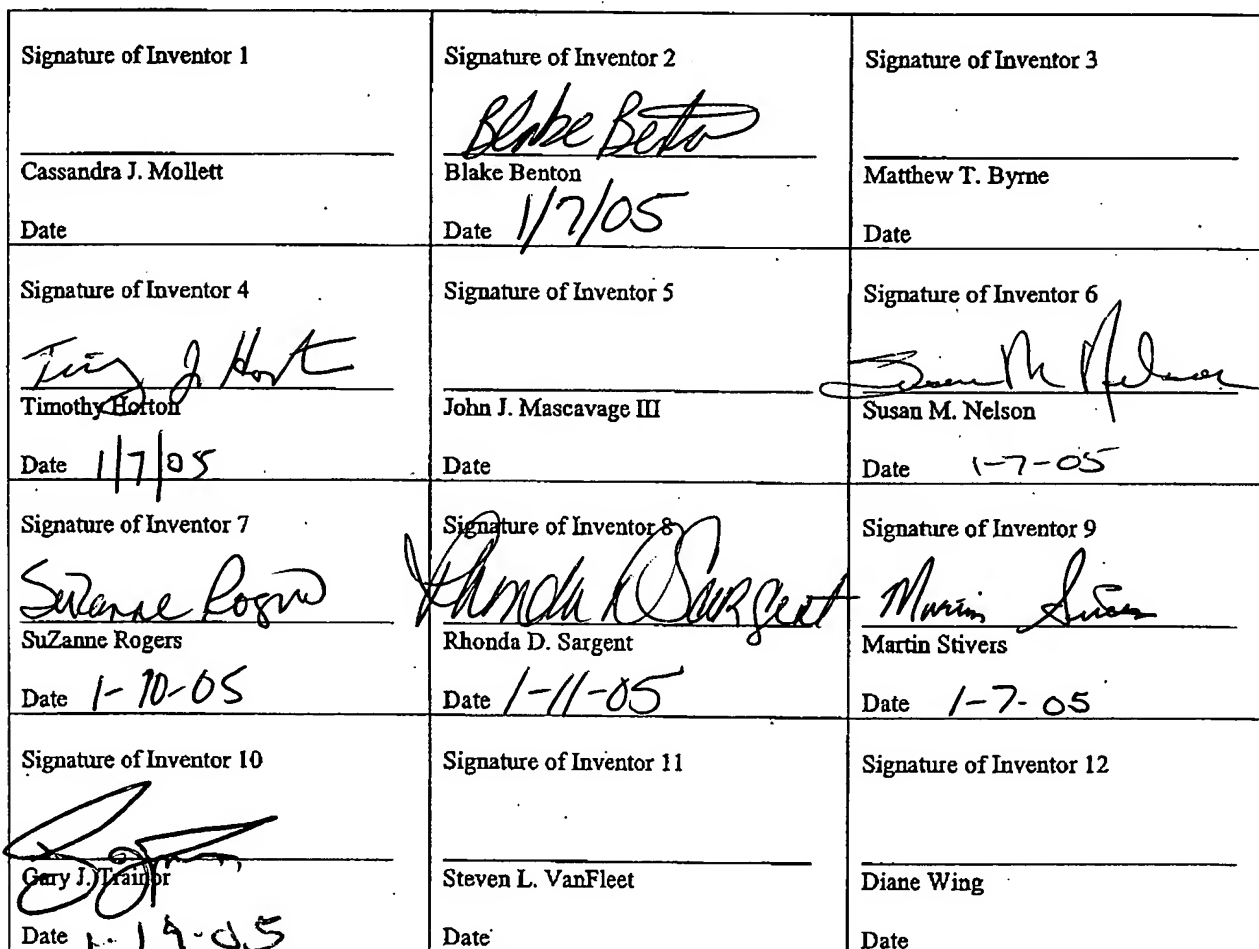 Signature of Inventor 1
Cassandra J. Mollett
Date
Signature of Inventor 2
Blake Benton
Blake Benton
Date 1/7/05
Signature of Inventor 3
Matthew T. Byrne
Date
Signature of Inventor 4
Timothy Horton
Date 1/7/05
Signature of Inventor 5
John J. Mascavage III
Date
Signature of Inventor 6
Susan M Nelson
Susan M. Nelson
Date 1-7-05
Signature of Inventor 7
SuZanne Rogers
SuZanne Rogers
Date 1-10-05
Signature of Inventor 8
Rhonda D Sargent
Rhonda D. Sargent
Date 1-11-05
Signature of Inventor 9
Martin Stivers
Martin Stivers
Date 1-7-05
Signature of Inventor 10
Gary J. Trainor
Date 1-19-05
Signature of Inventor 11
Steven L. VanFleet
Date
Signature of Inventor 12
Diane Wing
Date